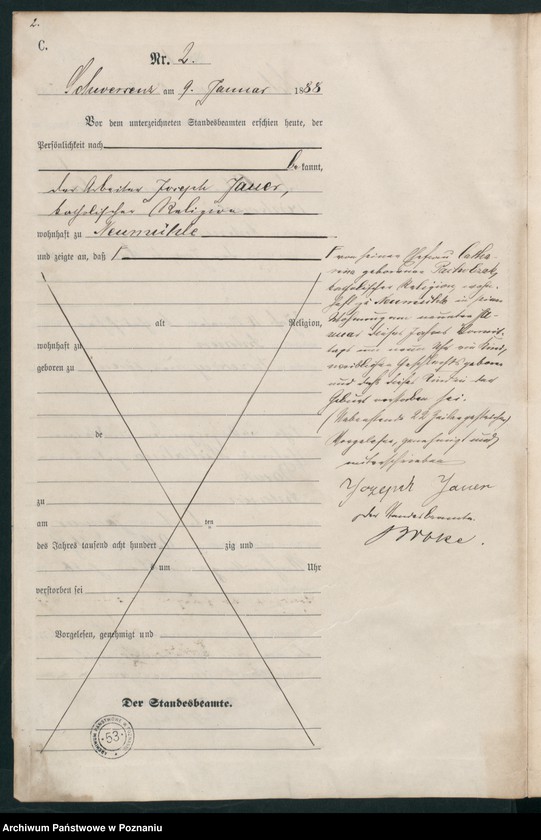 2.
C.
Nr. 2.
Schwersenz am 9. Januar 1888
Vor dem unterzeichneten Standesbeamten erschien heute, der
Persönlichkeit nach
bekannt,
der Arbeiter Joseph Jauer,
katholischer Religion
wohnhaft zu Neumühle
und zeigte an, daß Γ
alt Religion,
wohnhaft zu
geboren zu
de
zu
am ten
des Jahres tausend acht hundert zig und
um Uhr
verstorben sei
Vorgelesen, genehmigt und
Der Standesbeamte.
ARCHIWUM PAŃSTWOWE W POZNANIU
53
Γ von seiner Ehefrau Catha-
rina geborenen
katholischer Religion, wohn-
haft zu Neumühle in seiner
Wohnung am neunten Ja-
nuar dieses Jahres Vormit-
tags um neun Uhr ein Kind
weiblichen Geschlechts geboren
und daß dieses Kind in der
Geburt verstorben sei.
(Nebenstehende 22 Zeilen gestrichen)
Vorgelesen, genehmigt und
unterschrieben
Jozeph Jauer
Der Standesbeamte.
Archiwum Państwowe w Poznaniu